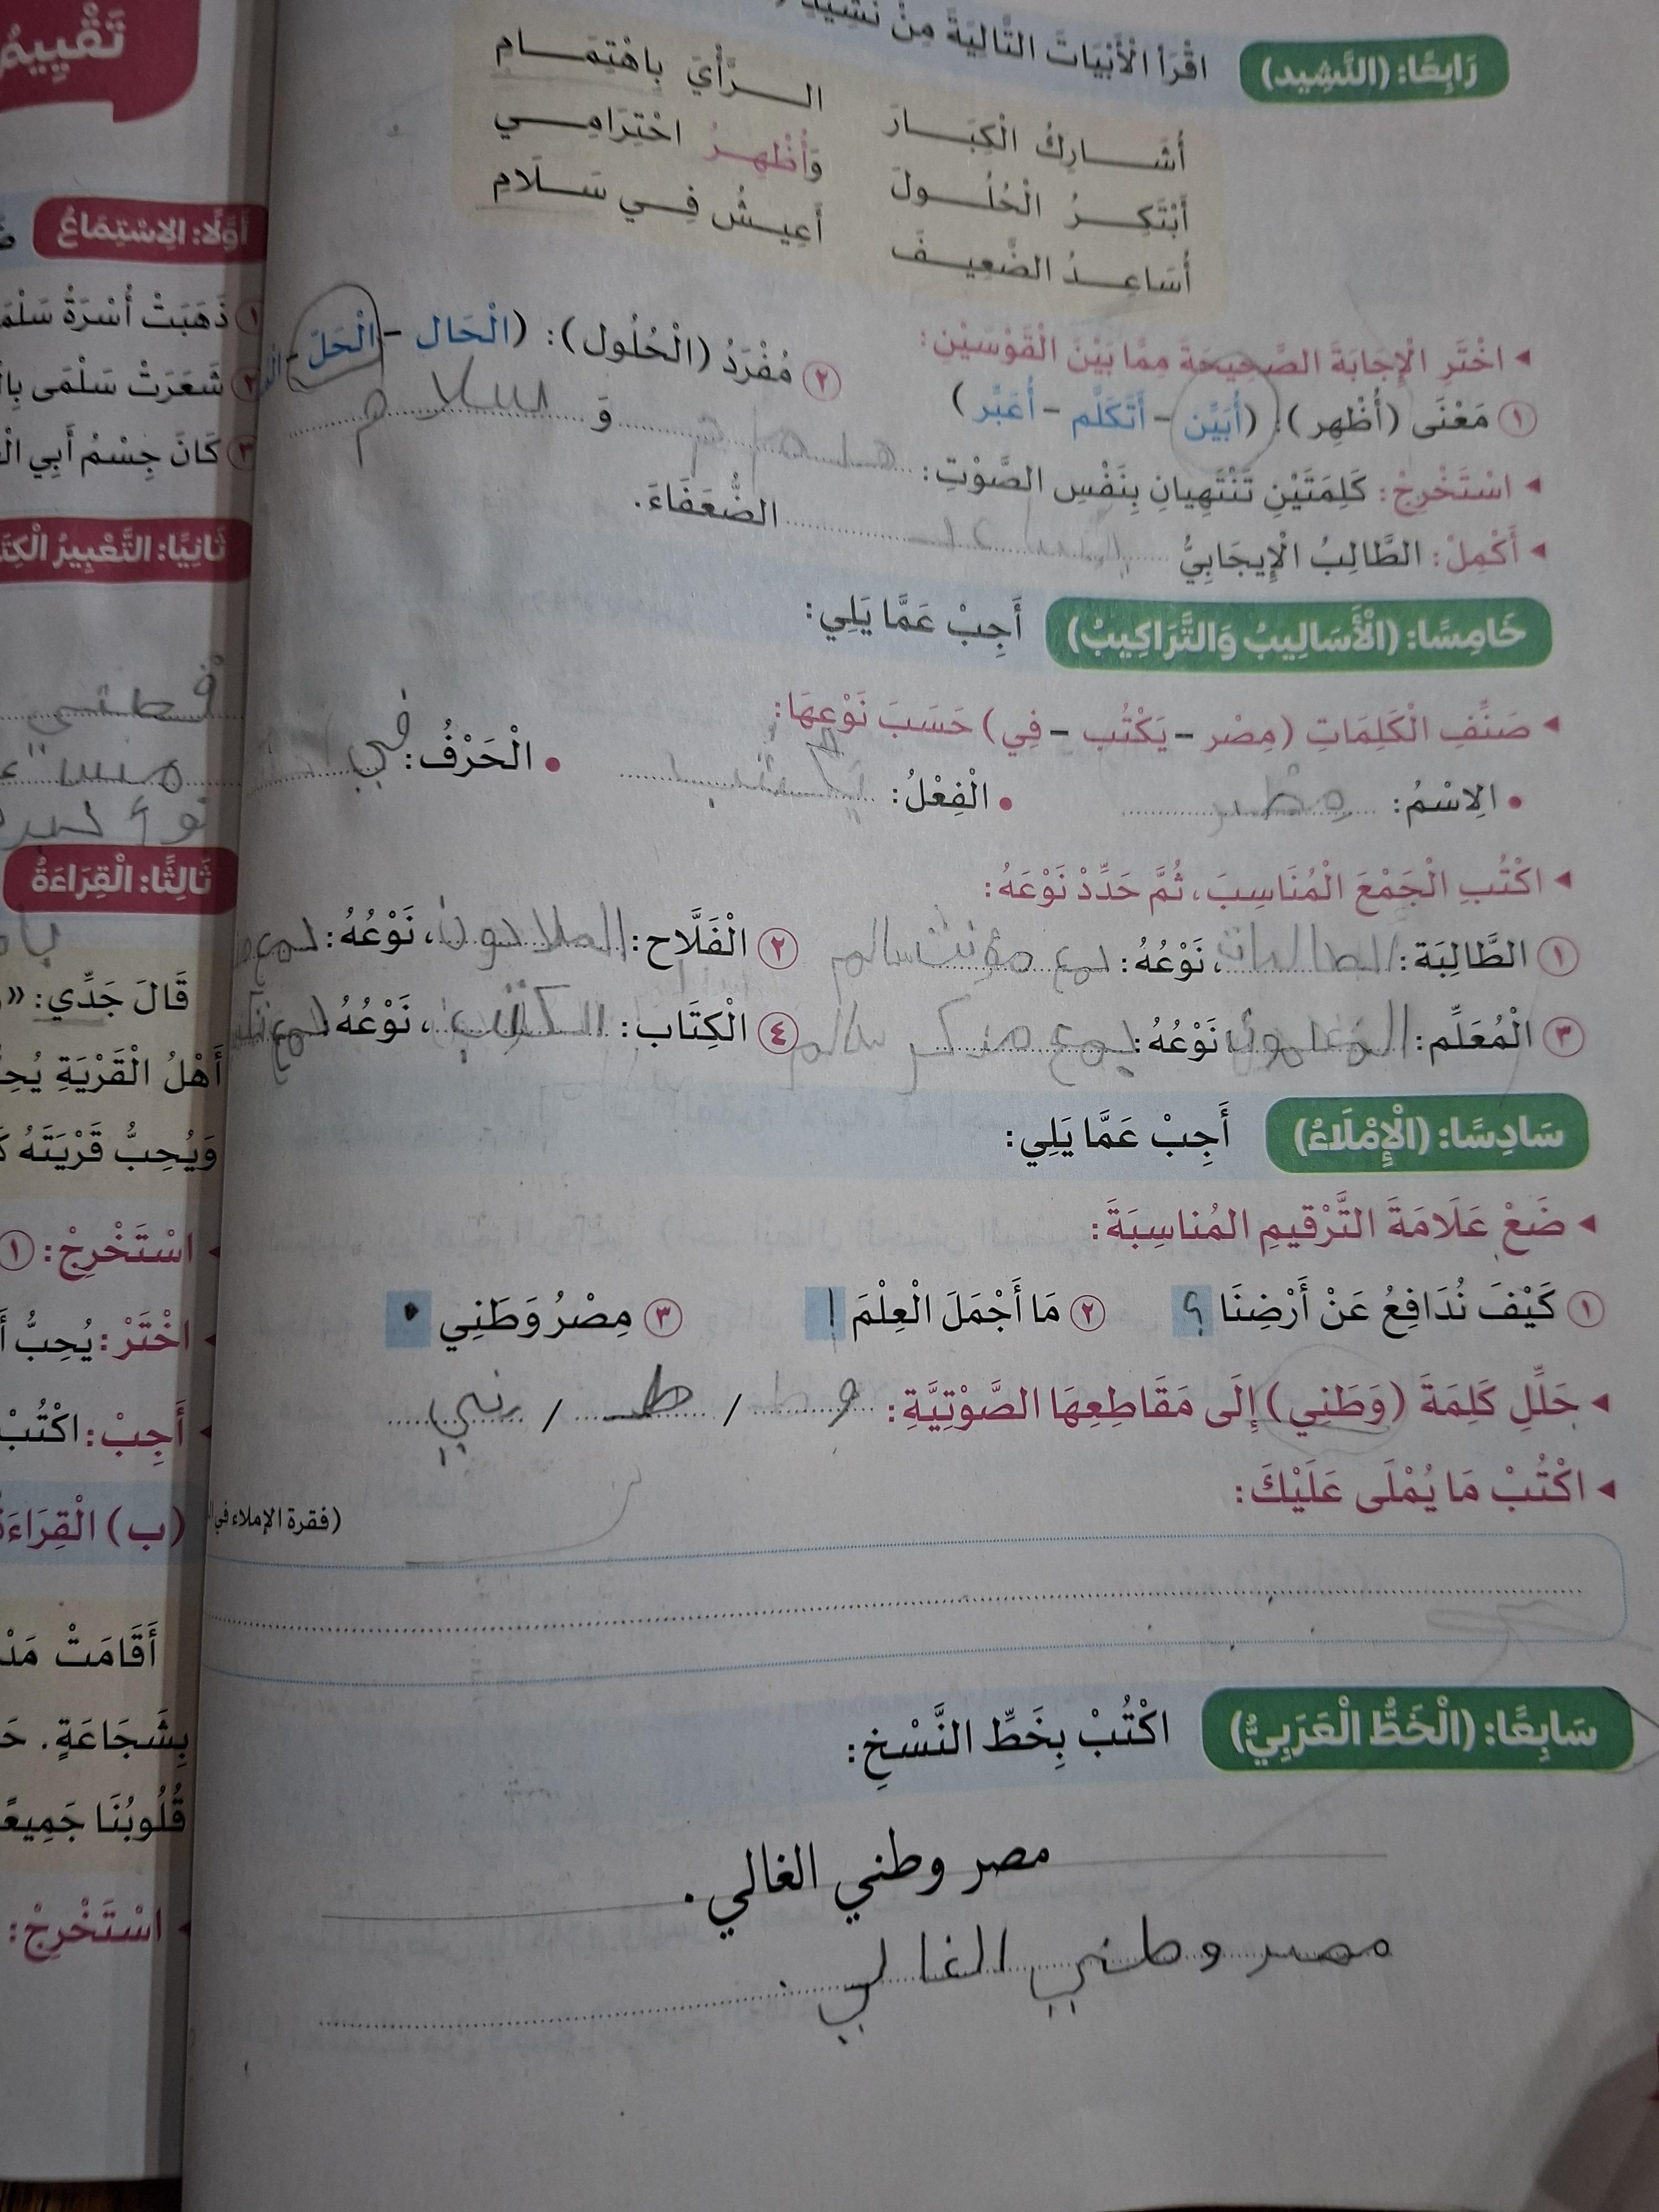 رَابِعًا: (النَّشِيد) اقْرَأِ الْأَبْيَاتَ التَّالِيَةَ مِنْ نَشِيدِ
أُشَـــارِكُ الْكِبَــــارَ الـــرَّأْيَ بِاهْتِمَـــامِ
أَبْتَكِـــرُ الْحُلُـــولَ وَأُظْهِـــرُ احْتِرَامِـــي
أُسَاعِـــدُ الضَّعِيـــفَ أَعِيـــشُ فِـــي سَـــلَامِ
◂ اخْتَرِ الْإِجَابَةَ الصَّحِيحَةَ مِمَّا بَيْنَ الْقَوْسَيْنِ:
١ مَعْنَى (أُظْهِر): (أُبَيِّن - أَتَكَلَّم - أُعَبِّر) ٢ مُفْرَدُ (الْحُلُول): (الْحَال - الْحَلّ -
◂ اسْتَخْرِجْ: كَلِمَتَيْنِ تَنْتَهِيانِ بِنَفْسِ الصَّوْتِ: وَ سلام
◂ أَكْمِلْ: الطَّالِبُ الْإِيجَابِيُّ الضُّعَفَاءَ.
خَامِسًا: (الْأَسَالِيبُ وَالتَّرَاكِيبُ) أَجِبْ عَمَّا يَلِي:
◂ صَنِّفِ الْكَلِمَاتِ (مِصْر - يَكْتُب - فِي) حَسَبَ نَوْعِهَا:
• الِاسْمُ: مصر • الْفِعْلُ: يكتب • الْحَرْفُ: في
◂ اكْتُبِ الْجَمْعَ الْمُنَاسِبَ، ثُمَّ حَدِّدْ نَوْعَهُ:
١ الطَّالِبَة: الطالبات، نَوْعُهُ: جمع مؤنث سالم ٢ الْفَلَّاح: الفلاحون، نَوْعُهُ: جمع
٣ الْمُعَلِّم: المعلمون نَوْعُهُ: جمع مذكر سالم ٤ الْكِتَاب: الكتب، نَوْعُهُ: جمع
سَادِسًا: (الْإِمْلَاءُ) أَجِبْ عَمَّا يَلِي:
◂ ضَعْ عَلَامَةَ التَّرْقِيمِ الْمُنَاسِبَةَ:
١ كَيْفَ نُدَافِعُ عَنْ أَرْضِنَا ؟ ٢ مَا أَجْمَلَ الْعِلْمَ ! ٣ مِصْرُ وَطَنِي .
◂ حَلِّلِ كَلِمَةَ (وَطَنِي) إِلَى مَقَاطِعِهَا الصَّوْتِيَّةِ: و / طـ / ني
◂ اكْتُبْ مَا يُمْلَى عَلَيْكَ:
(فقرة الإملاء في
سَابِعًا: (الْخَطُّ الْعَرَبِيُّ) اكْتُبْ بِخَطِّ النَّسْخِ:
مصر وطني الغالي .
مصر وطني الغالي .
أَوَّلًا: الِاسْتِمَاعُ
١ ذَهَبَتْ أُسْرَةُ
٢ شَعَرَتْ سَلْمَى
٣ كَانَ جِسْمُ أَبِي
ثَانِيًا: التَّعْبِيرُ
ثَالِثًا: الْقِرَاءَةُ
قَالَ جَدِّي: «
أَهْلُ الْقَرْيَةِ
وَيُحِبُّ قَرْيَتَهُ
◂ اسْتَخْرِجْ: ١
◂ اخْتَرْ: يُحِبُّ
◂ أَجِبْ: اكْتُبْ
(ب) الْقِرَاءَةُ
أَقَامَتْ
بِشَجَاعَةٍ.
قُلُوبُنَا جَمِيعًا
◂ اسْتَخْرِجْ: